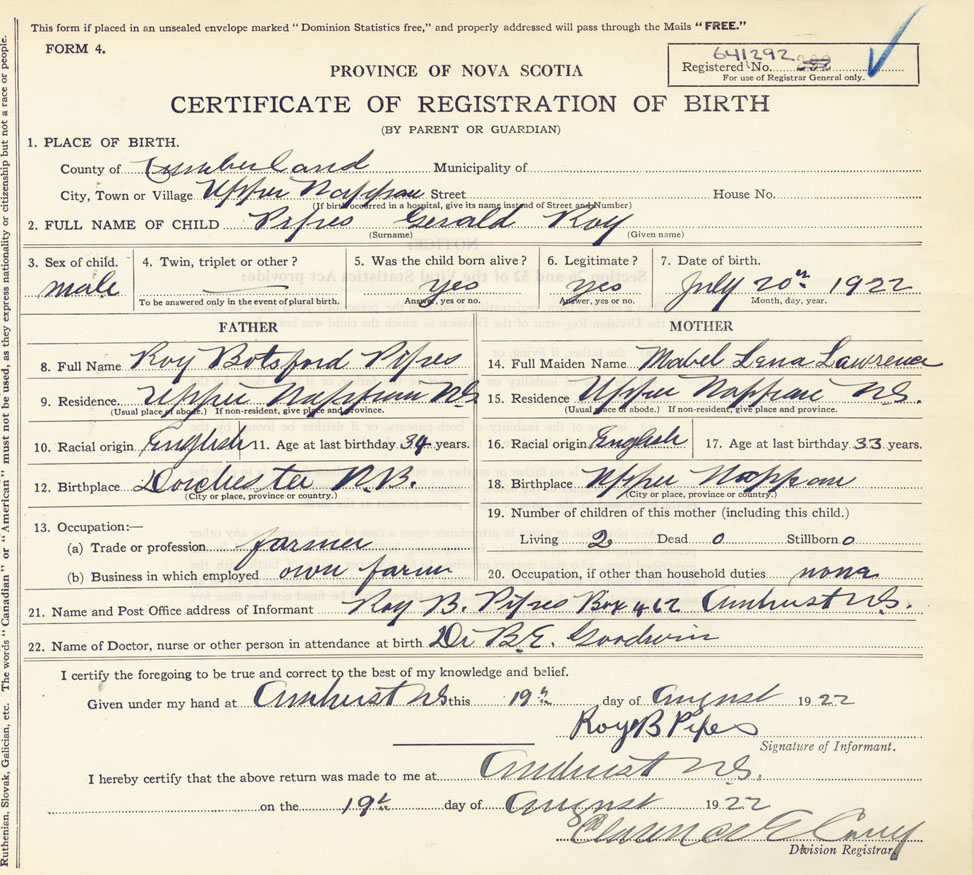 This form if placed in an unsealed envelope marked "Dominion Statistics free," and properly addressed will pass through the Mails "FREE."
FORM 4.
641292
Registered No.
For use of Registrar General only.
PROVINCE OF NOVA SCOTIA
CERTIFICATE OF REGISTRATION OF BIRTH
(BY PARENT OR GUARDIAN)
1. PLACE OF BIRTH.
County of Cumberland Municipality of
City, Town or Village Upper Nappan Street House No.
(If birth occurred in a hospital, give its name instead of Street and Number)
2. FULL NAME OF CHILD Pipes Gerald Roy
(Surname) (Given name)
3. Sex of child. 4. Twin, triplet or other? 5. Was the child born alive? 6. Legitimate? 7. Date of birth.
male yes yes July 20th 1922
To be answered only in the event of plural birth. Answer, yes or no. Answer, yes or no. Month, day, year.
FATHER MOTHER
8. Full Name Roy Botsford Pipes 14. Full Maiden Name Mabel Lena Lawrence
9. Residence. Upper Nappan NS 15. Residence Upper Nappan NS.
(Usual place of abode.) If non-resident, give place and province. (Usual place of abode.) If non-resident, give place and province.
10. Racial origin English 11. Age at last birthday 34 years. 16. Racial origin English 17. Age at last birthday 33 years.
12. Birthplace Dorchester N.B. 18. Birthplace Upper Nappan
(City or place, province or country.) (City or place, province or country.)
13. Occupation:— 19. Number of children of this mother (including this child.)
(a) Trade or profession farmer Living 2 Dead 0 Stillborn 0
(b) Business in which employed own farm 20. Occupation, if other than household duties none
21. Name and Post Office address of Informant Roy B. Pipes Box 462 Amherst N.S.
22. Name of Doctor, nurse or other person in attendance at birth Dr B.E. Goodwin
I certify the foregoing to be true and correct to the best of my knowledge and belief.
Given under my hand at Amherst NS this 19th day of August 1922
Roy B Pipes
Signature of Informant.
I hereby certify that the above return was made to me at Amherst N.S.
on the 19th day of August 1922
Clarence E Casey
Division Registrar
Ruthenian, Slovak, Galician, etc. The words "Canadian" or "American" must not be used, as they express nationality or citizenship but not a race or people.